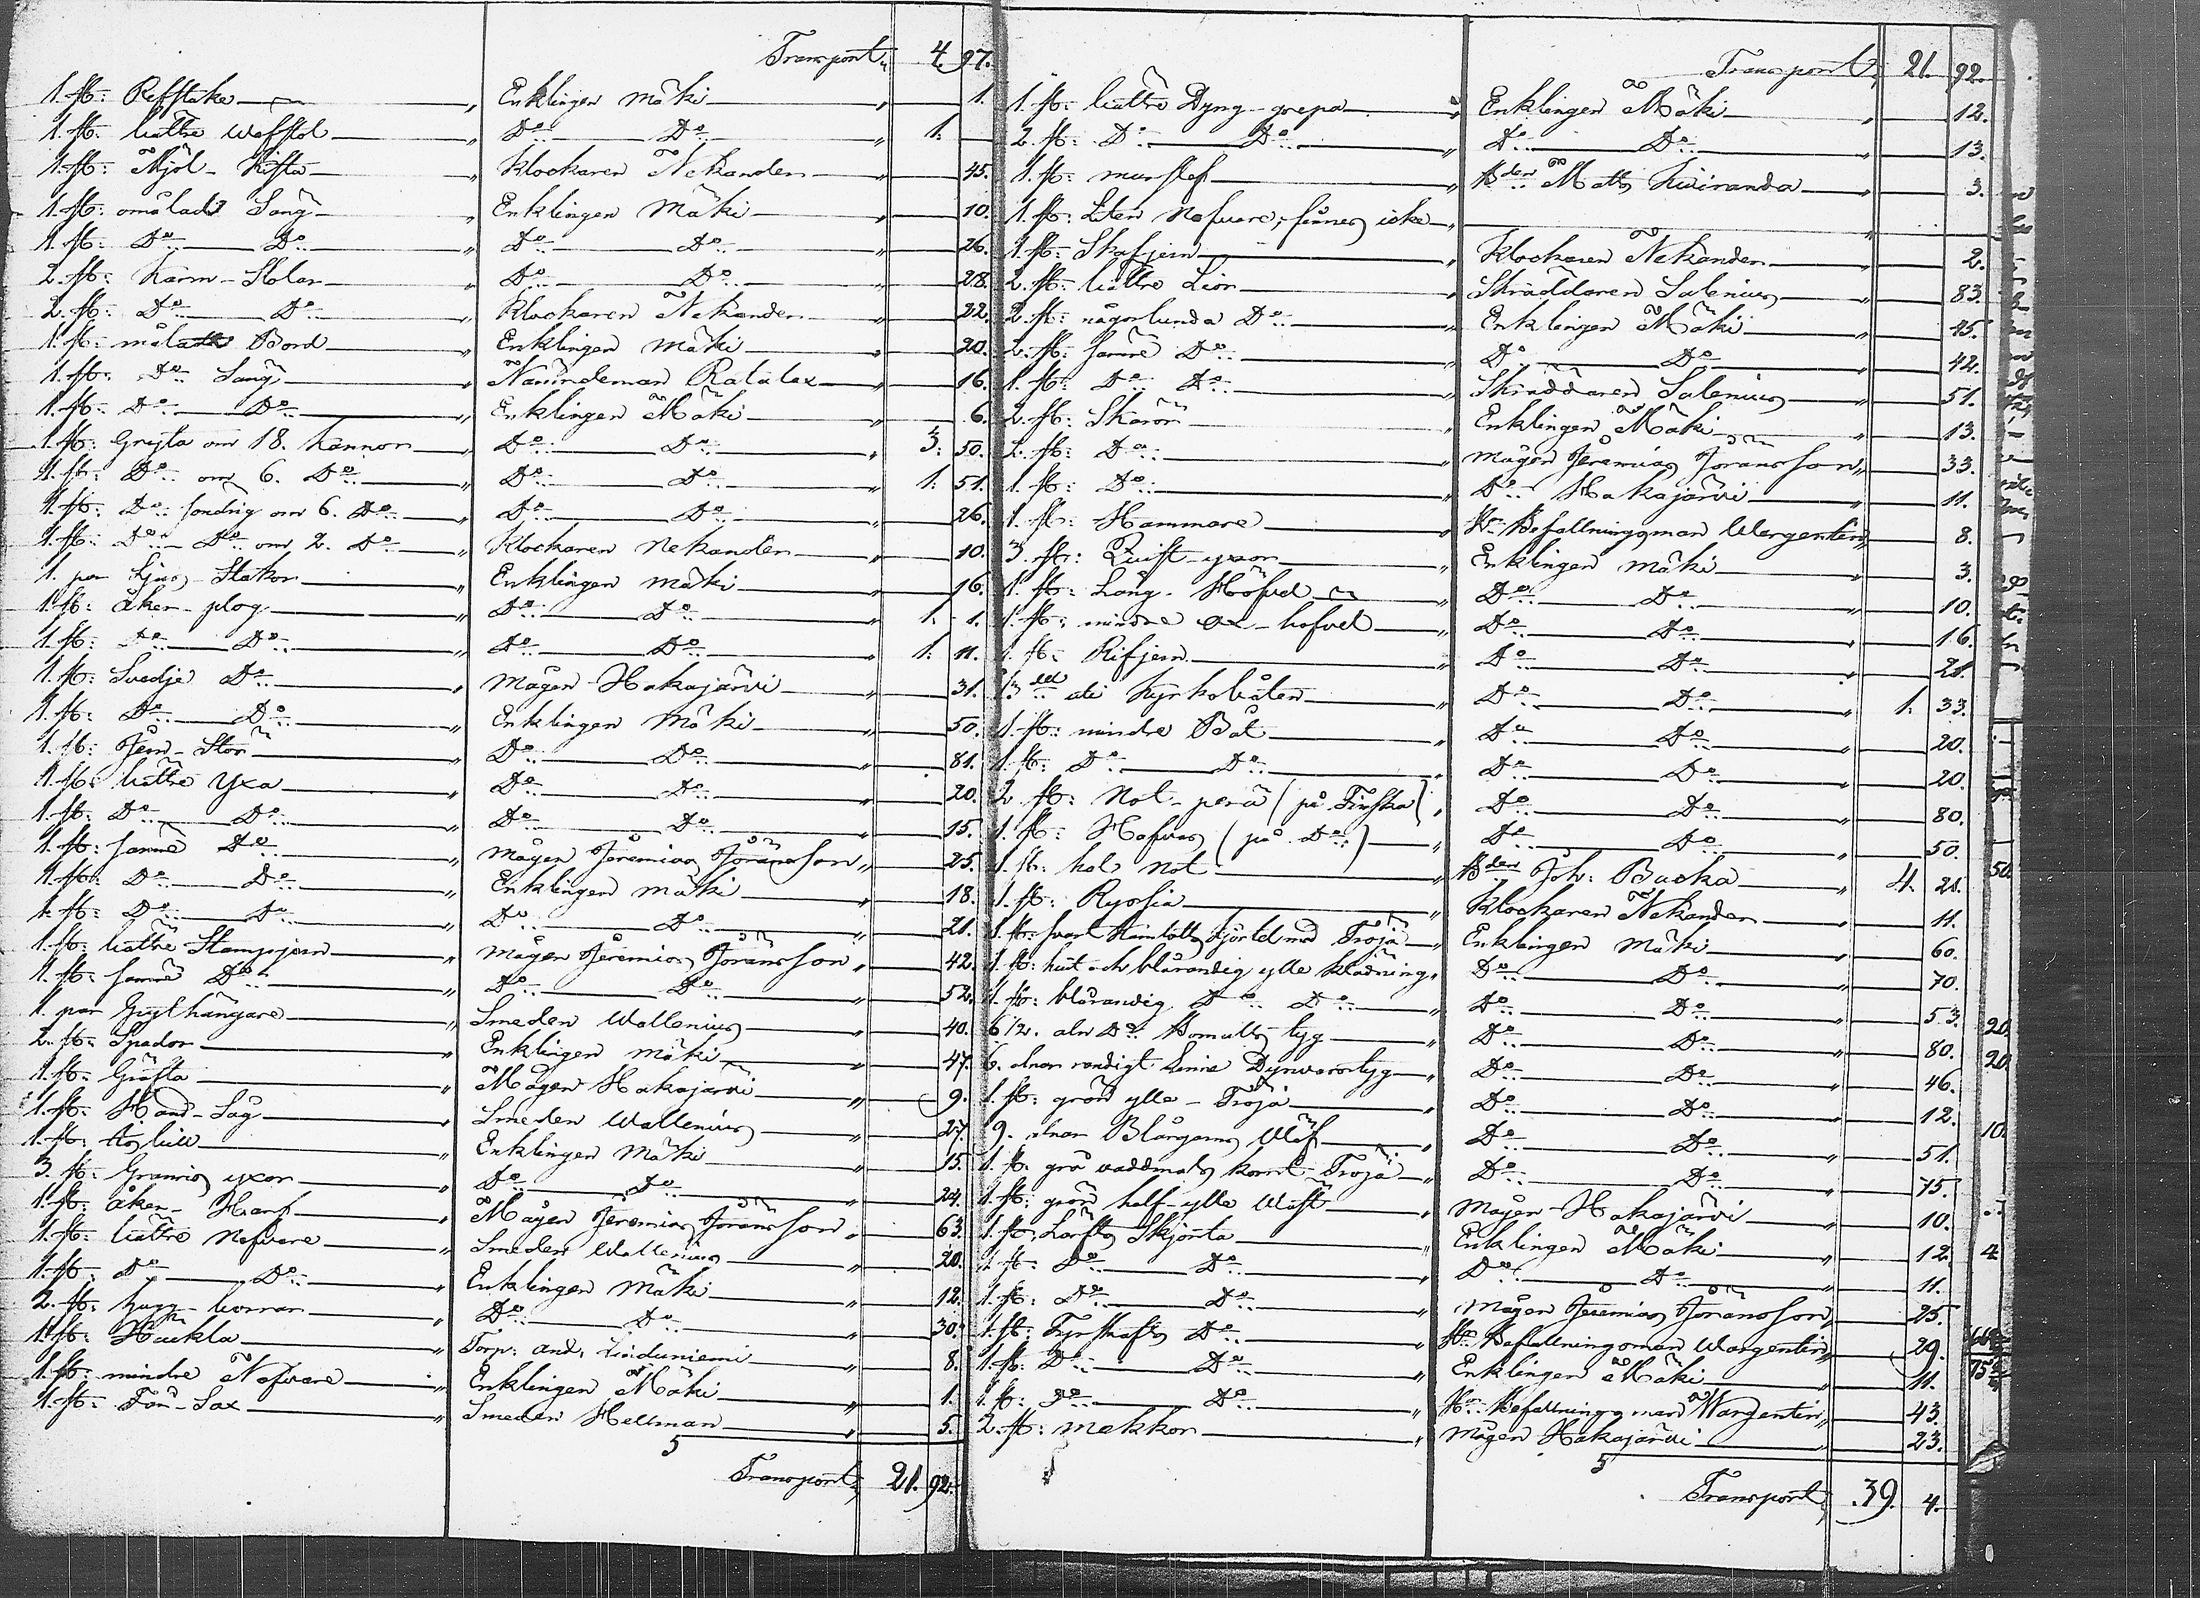 Transport 4. 97.
1. st: Refstake Enklingen Mäki 1.
1. st: bättre Wäfstol Do Do 1.
1. st: Mjöl-Kista Klockaren Nekanden 45.
1. st: omålad Säng Enklingen Mäki 10.
1. st: Do Do Do Do 26.
2. st: Karm-Stolar Do Do 28.
2. st: Do Do Klockaren Nekanden 22.
1. st: måladt Bord Enklingen Mäki 20.
1. st: Do Säng Nämndeman Ratalax 16.
1. st: Do Do Enklingen Mäki 6.
1. st: Gryta om 18. kannor Do Do 3. 50.
1. st: Do om 6. Do Do Do 1. 51.
1. st: Do söndrig om 6. Do Do Do 26.
1. st: Do Do om 2. Do Klockaren Nekanden 10.
1. par Ljus-Stakar Enklingen Mäki 16.
1. st: åker-plog Do Do 1. 1.
1. st: Do Do Do Do 1. 11.
1. st: Svedje Do Mågen Hakajärvi 31.
1. st: Do Do Enklingen Mäki 50.
1. st: Jern-Stör Do Do 81.
1. st: bättre Yxa Do Do 20.
1. st: Do Do Do Do 15.
1. st: sämre Do Mågen Jeremias Jöransson 25.
1. st: Do Do Enklingen Mäki 18.
1. st: Do Do Do Do 21.
1. st: bättre Stampjern Mågen Jeremias Jöransson 42.
1. st: sämre Do Do Do 52.
1. par Grythängare Smeden Wallenius 40.
2. st: Spador Enklingen Mäki 47.
1. st: Gräfta Mågen Hakajärvi 9.
1. st: Hand-Såg Smeden Wallenius 27.
1. st: Enklingen Mäki 15.
3. st: yxor Do Do 24.
1. st: åker-Harf Mågen Jeremias Jöransson 63.
1. st: bättre Nafvare Smeden Wallenius 20.
1. st: Do Do Enklingen Mäki 12.
2. st: Hugg-borrar Do Do 30.
1. st: Häckla Torp: And: Linduniemi 8.
1. st: mindre Nafvare Enklingen Mäki 1.
1. st: Sax Smeden Hellman 5.
Transport 21. 92.
Transport 21. 92.
1. st: bättre Dyng-grepa Enklingen Mäki 12.
2. st: Do Do Do Do 13.
1. st: murslef Bden Matts Kiviranda 3.
1. st: Liten Nafvare, finnes icke
1. st: Skafjern Klockaren Nekanden 2.
2. st: bättre Liar Skräddaren Salenius 83.
2. st: någorlunda Do Enklingen Mäki 45.
2. st: sämre Do Do Do 42.
1. st: Do Do Skräddaren Salenius 51.
2. st: Skäror Enklingen Mäki 13.
2. st: Do Mågen Jeremias Jöransson 33.
1. st: Do Do Hakajärvi 11.
1. st: Hammare Hr Befallningsman Wargentin 8.
3. st: Quist-yxor Enklingen Mäki 3.
1. st: Lång-Höfvel Do Do 10.
1. st: mindre hofvel Do Do 16.
1. st: Rifjern Do Do 21.
1/3 del uti Kyrkobåten Do Do 1. 33.
1. st: mindre Båt Do Do 20.
1. st: Do Do Do Do 20.
2. st: Not-perä (på Finska) Do Do 80.
1. st: Hafvas (på Do) Do Do 50.
1. st: hel Not Bden Joh: Backa 4. 21.
1. st: Ryssia Klockaren Nekanden 11.
1. st: svart Kjortel med Tröja Enklingen Mäki 60.
1. st: hvit och blårandig ylle Klädning Do Do 70.
1. st: blårandig Do Do Do Do 53.
6 1/2. aln Do Bomulls tyg Do Do 80.
6. alnar randigt Linne Dynvarstyg Do Do 46.
1. st: grön ylle-Tröja Do Do 12.
9. alnar Blångarns Wäf Do Do 51.
1. st: grå vaddmals kort-Tröja Do Do 75.
1. st: grön half-ylle Wäst Mågen Hakajärvi 10.
1. st: Lärfts Skjorta Enklingen Mäki 12.
1. st: Do Do Do Do 11.
1. st: Do Do Mågen Jeremias Jöransson 25.
1. st: Fyrskafts Do Hr Befallningsman Wargentin 29.
1. st: Do Do Enklingen Mäki 11.
1. st: Do Do Hr Befallningsman Wargentin 43.
2. st: makkor Mågen Hakajärvi 23.
Transport 39. 4.